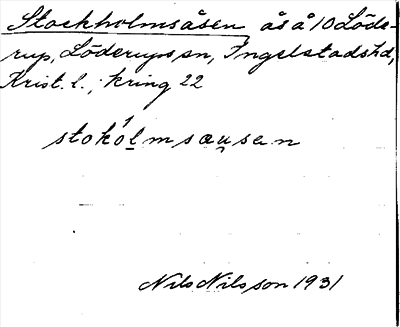 Stockholmsåsen ås å 10 Löde-
rup, Löderups sn, Ingelstads hd,
Krist. l., kring 22
stokólmsau̯sen
Nils Nilsson 1931